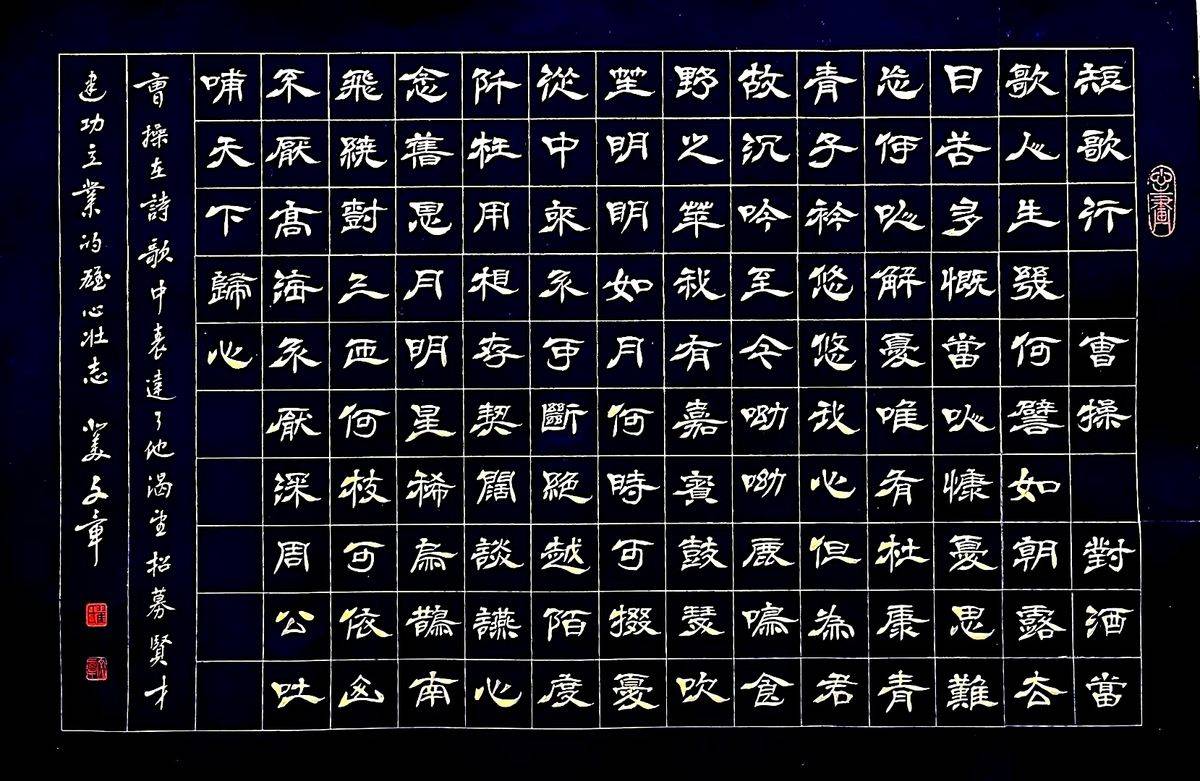 短歌行 曹操 對酒當
歌人生幾何譬如朝露去
日苦多慨當以慷憂思難
忘何以解憂唯有杜康青
青子衿悠悠我心但為君
故沉吟至今呦呦鹿鳴食
野之苹我有嘉賓鼓瑟吹
笙明明如月何時可掇憂
從中來不可斷絕越陌度
阡枉用相存契闊談讌心
念舊恩月明星稀烏鵲南
飛繞樹三匝何枝可依山
不厭高海不厭深周公吐
哺天下歸心
曹操在詩歌中表達了他渴望招募賢才
建功立業的雄心壯志 姜文章